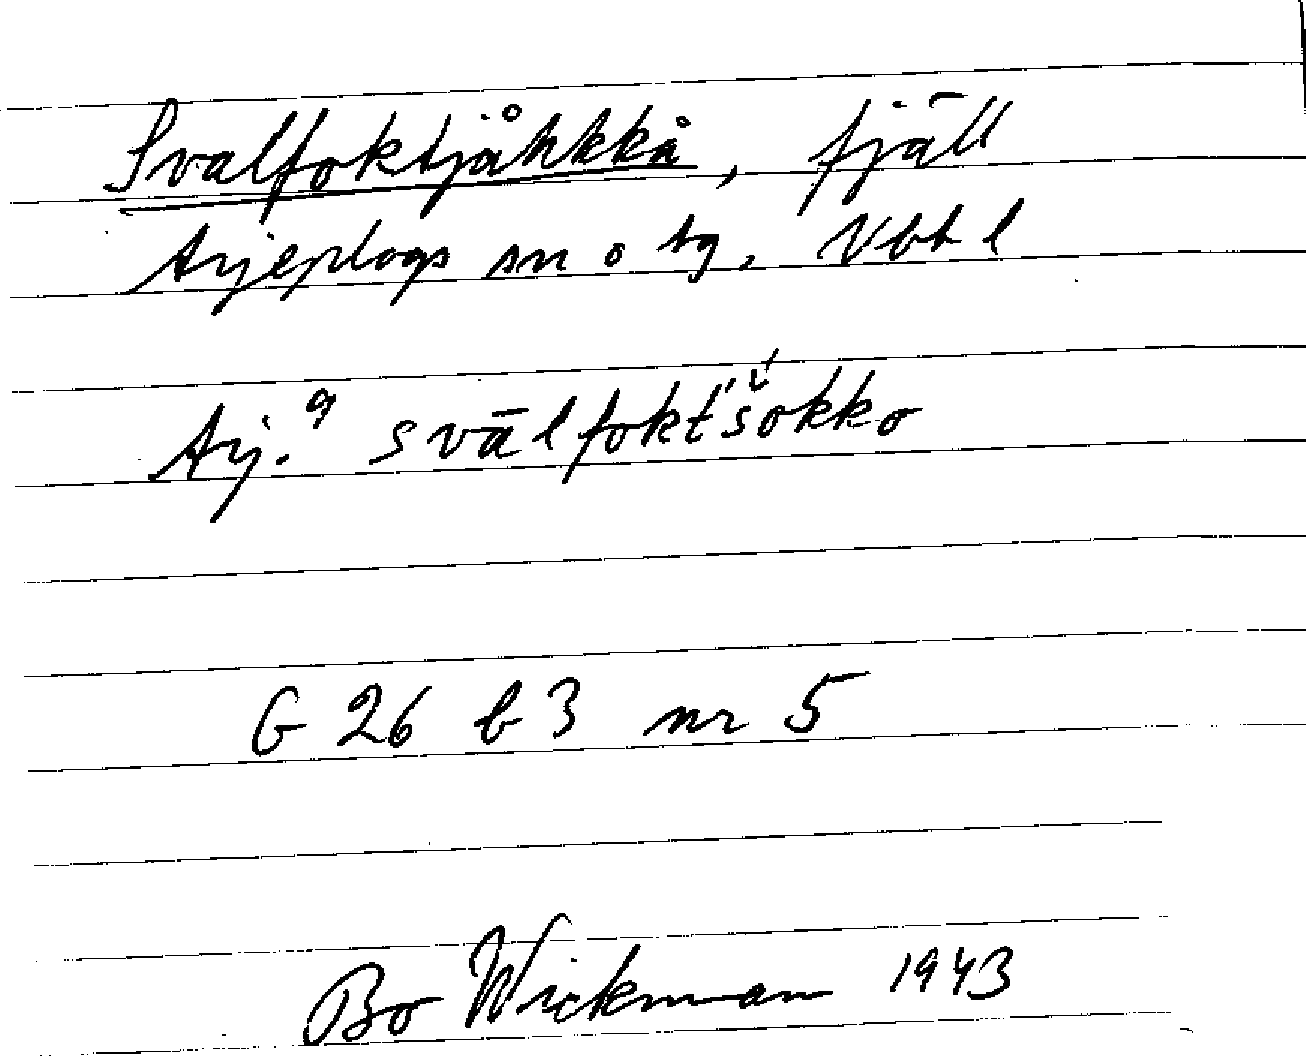 Svalfoktjåhkkå, fjäll
Arjeplogs sn o tg, Vbt l
Arj. 9 svālfokt́'š́okko
G 26 b 3 nr 5
Bo Wickman 1943